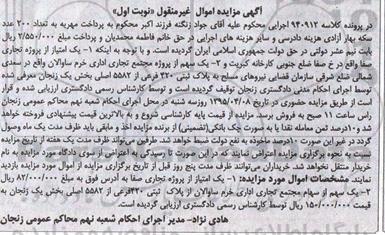 آگهی مزایده اموال غیرمنقول «نوبت اول»
در پرونده کلاسه ۹۴۰۹۱۲ اجرایی محکوم علیه آقای جواد زنگنه فرزند اکبر محکوم به پرداخت مهریه به تعداد ۲۰۰ عدد
سکه بهار آزادی هزینه دادرسی و سایر هزینه های اجرایی در حق خانم فاطمه محمدیان و پرداخت مبلغ ۲/۵۵۰/۰۰۰ ریال
بابت نیم عشر دولتی در حق دولت جمهوری اسلامی ایران گردیده است. و با توجه به اینکه ۱- یک امتیاز از پروژه تجاری
صفا واقع در خ صفا ضلع جنوبی کارخانه کبریت و ۲- یک سهم از پروژه مجتمع تجاری اداری خرم ساوالان واقع در سعدی
شمالی ضلع شرقی سازمان قضایی نیروهای مسلح به پلاک ثبتی ۳۲۰ فرعی از ۵۵۸۲ اصلی بخش یک زنجان معرفی شده
توسط اجرای احکام مدنی دادگستری زنجان توقیف گردیده است و توسط کارشناس رسمی دادگستری ارزیابی شده و قرار
است از طریق مزایده حضوری در تاریخ ۱۳۹۵/۰۴/۰۸ روز سه شنبه در محل اجرای احکام شعبه نهم محاکم عمومی زنجان
راس ساعت ۱۱ صبح به فروش برسد مزایده از قیمت پایه کارشناسی شروع و به بالاترین قیمت پیشنهادی فروخته خواهد
شد و ۱۰درصد ثمن معامله نقدا یا به صورت چک بانکی(تضمینی) از برنده مزایده اخذ و مابقی باید ظرف مدت یک ماه وصول
گردد در غیر این صورت ۱۰درصد ماخوذه به نفع دولت ضبط خواهد شد. طرفین می‌تواند ظرف مدت یک هفته از تاریخ مزایده
نسبت به نحوه برگزاری مزایده اعتراض نمایند که در این صورت تا رسیدگی به اعتراض از سوی دادگاه مورد مزایده به نام
خریدار منتقل نخواهد شد. خریداران می‌توانند ظرف مدت پنج روز قبل از تاریخ برگزاری مزایده از اموال مورد مزایده بازدید
نمایند. مشخصات اموال مورد مزایده: ۱- یک امتیاز از پروژه تجاری صفا به آدرس فوق به مبلغ ۸۲/۰۰۰/۰۰۰ ریال
۲- یک سهم از سهام مجتمع تجاری اداری خرم ساوالان از پلاک ثبتی ۳۲۰فرعی از ۵۵۸۲ اصلی بخش یک زنجان به
مبلغ ۱۵۰/۰۰۰/۰۰۰ ریال توسط کارشناس رسمی دادگستری ارزیابی گردیده است.
هادی نژاد- مدیر اجرای احکام شعبه نهم محاکم عمومی زنجان